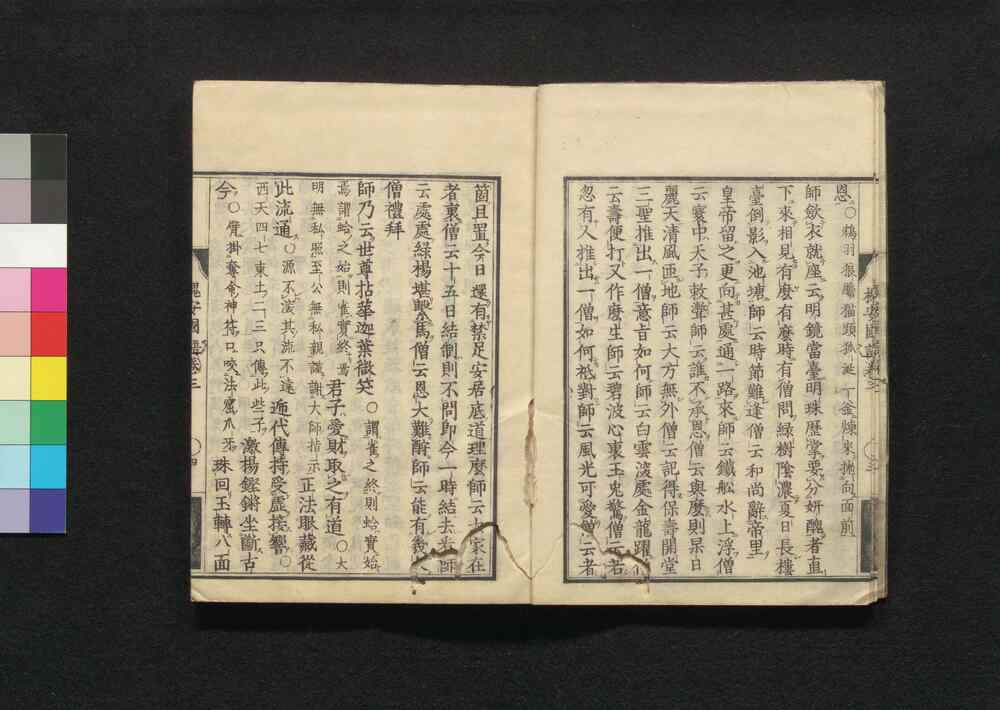 恩○鵶羽狼膽猫頭狐涎一丁金棟米抛向面前
師斂衣就座云明鏡當臺明珠歷掌要分妍醜者直
下來相見有麼有麼時有僧問綠樹陰濃夏日長樓
臺倒影入池塘師云時節難逢僧云和尚辭帝里
皇帝留之更向甚處通一路來師云鐵舩水上浮僧
云寰中天子敕聲師云誰不承恩僧云與麼則杲日
麗天清風匝地師云大方無外僧云記得保壽開堂
三聖推出一僧意旨如何師云白雲深處金龍躍僧
云壽便打又作麼生師云碧波心裏玉兎驚僧云若
忽有人推出一僧如何祗對師云風光可愛僧云者
箇且置今日還有禁足安居底道理麼師云大家在
者裏僧云十五日結制則不問即今一時結去㞐師
云處處綠楊堪繫馬僧云恩大難酬師云能有幾人
僧禮拜
師乃云世尊拈華迦葉微笑○謂雀之終則蛤實始
焉謂蛤之始則雀實終焉君子愛財取之有道○大
明無私照至公無私親謹謝大師指示正法眼藏從
此流通○源不深其流不遠遞代傳持受虛接響○
西天四七東土二三只傳此些子激揚鏗鏘坐斷古
今○臂掛奪命神符口咬法窟爪牙珠回玉轉八面
槐安國語卷三
三
槐安國語卷三
四